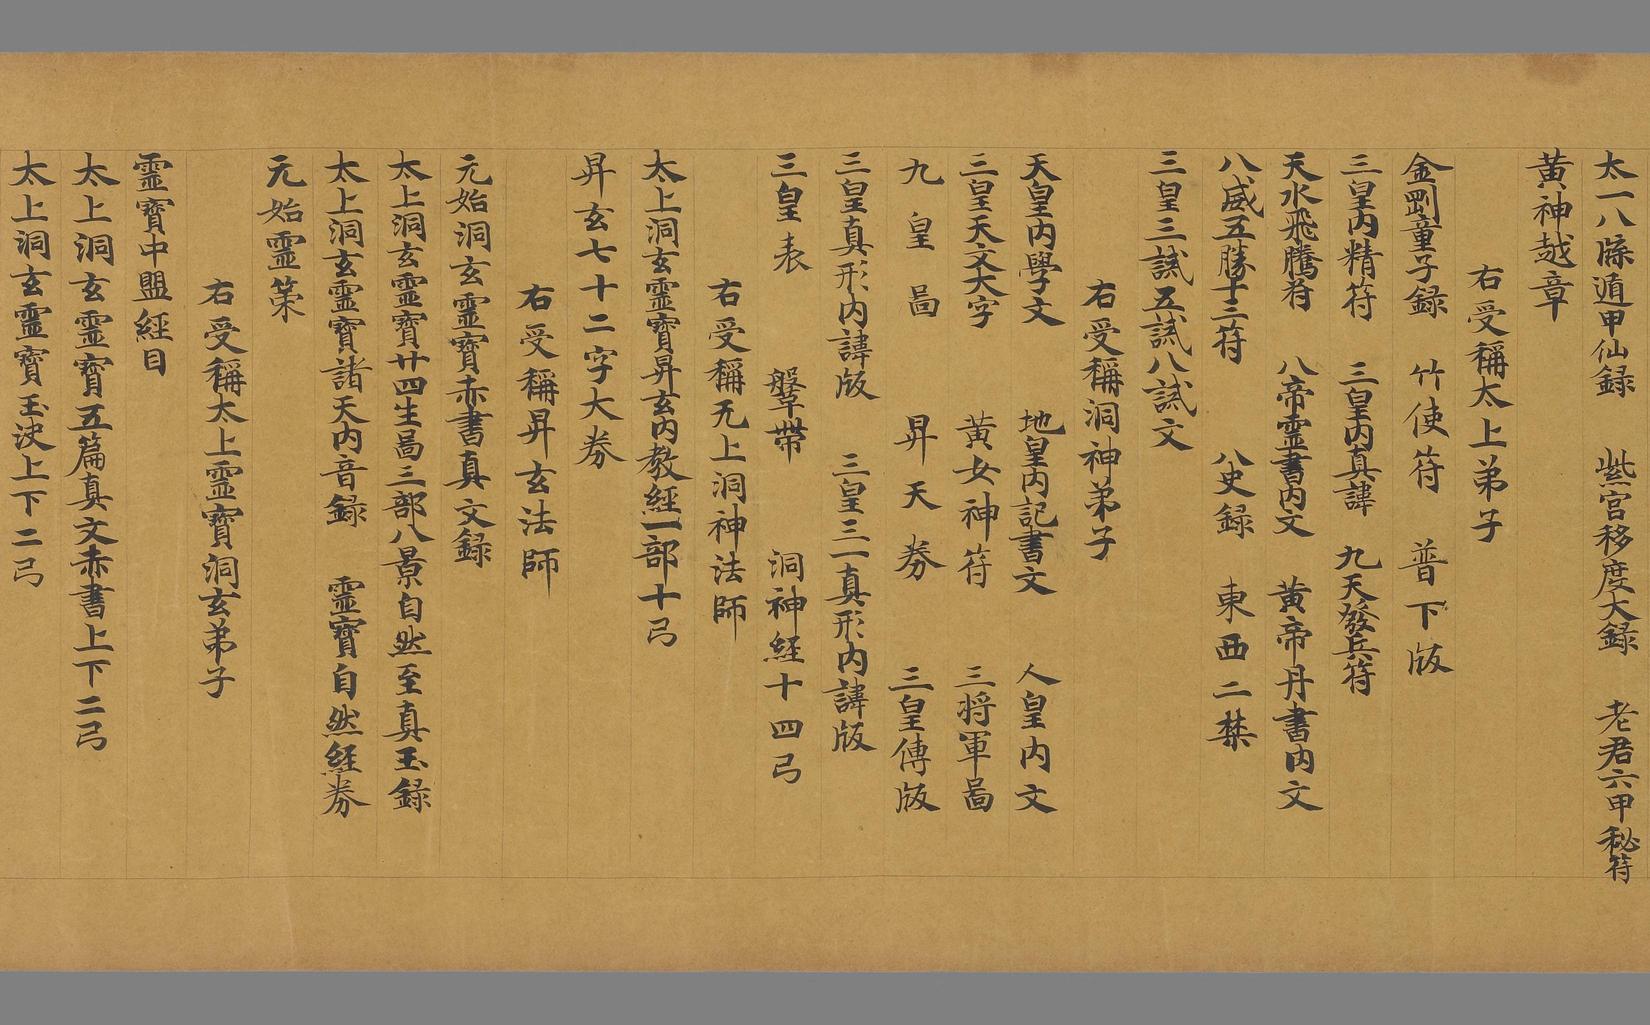 太一八牒遁甲仙録　紫宮移度大録　老君六甲秘符
黄神越章
右受稱太上弟子
金剛童子録　竹使符　普下版
三皇内精符　三皇内真諱　九天發兵符
天水飛騰符　八帝靈書内文　黄帝丹書内文
八威五勝十三符　八史録　東西二禁
三皇三試五試八試文
右受稱洞神弟子
天皇内學文　地皇内記書文　人皇内文
三皇天文大字　黄女神符　三将軍啚
九皇啚　昇天券　三皇傳版
三皇真形内諱版　三皇三一真形内諱版
三皇表　鞶帶　洞神経十四弓
右受稱无上洞神法師
太上洞玄靈寶昇玄内教經一部十弓
昇玄七十二字大券
右受稱昇玄法師
元始洞玄靈寶赤書真文録
太上洞玄靈寶廿四生啚三部八景自然至真玉録
太上洞玄靈寶諸天内音録　靈寶自然経券
元始靈策
右受稱太上靈寶洞玄弟子
靈寶中盟經目
太上洞玄靈寶五篇真文赤書上下二弓
太上洞玄靈寶玉決上下二弓